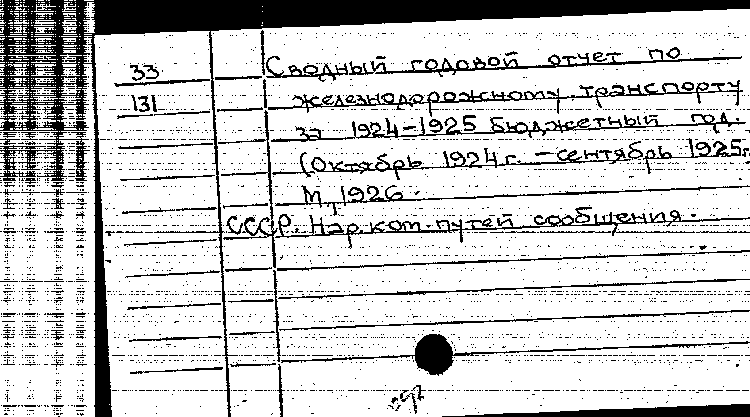 33 Сводный годовой отчет по
131 железнодорожному транспорту
за 1924-1925 бюджетный год.
(Октябрь 1924г. - сентябрь 1925г.
М., 1926.
СССР. Нар.ком.путей сообщения.